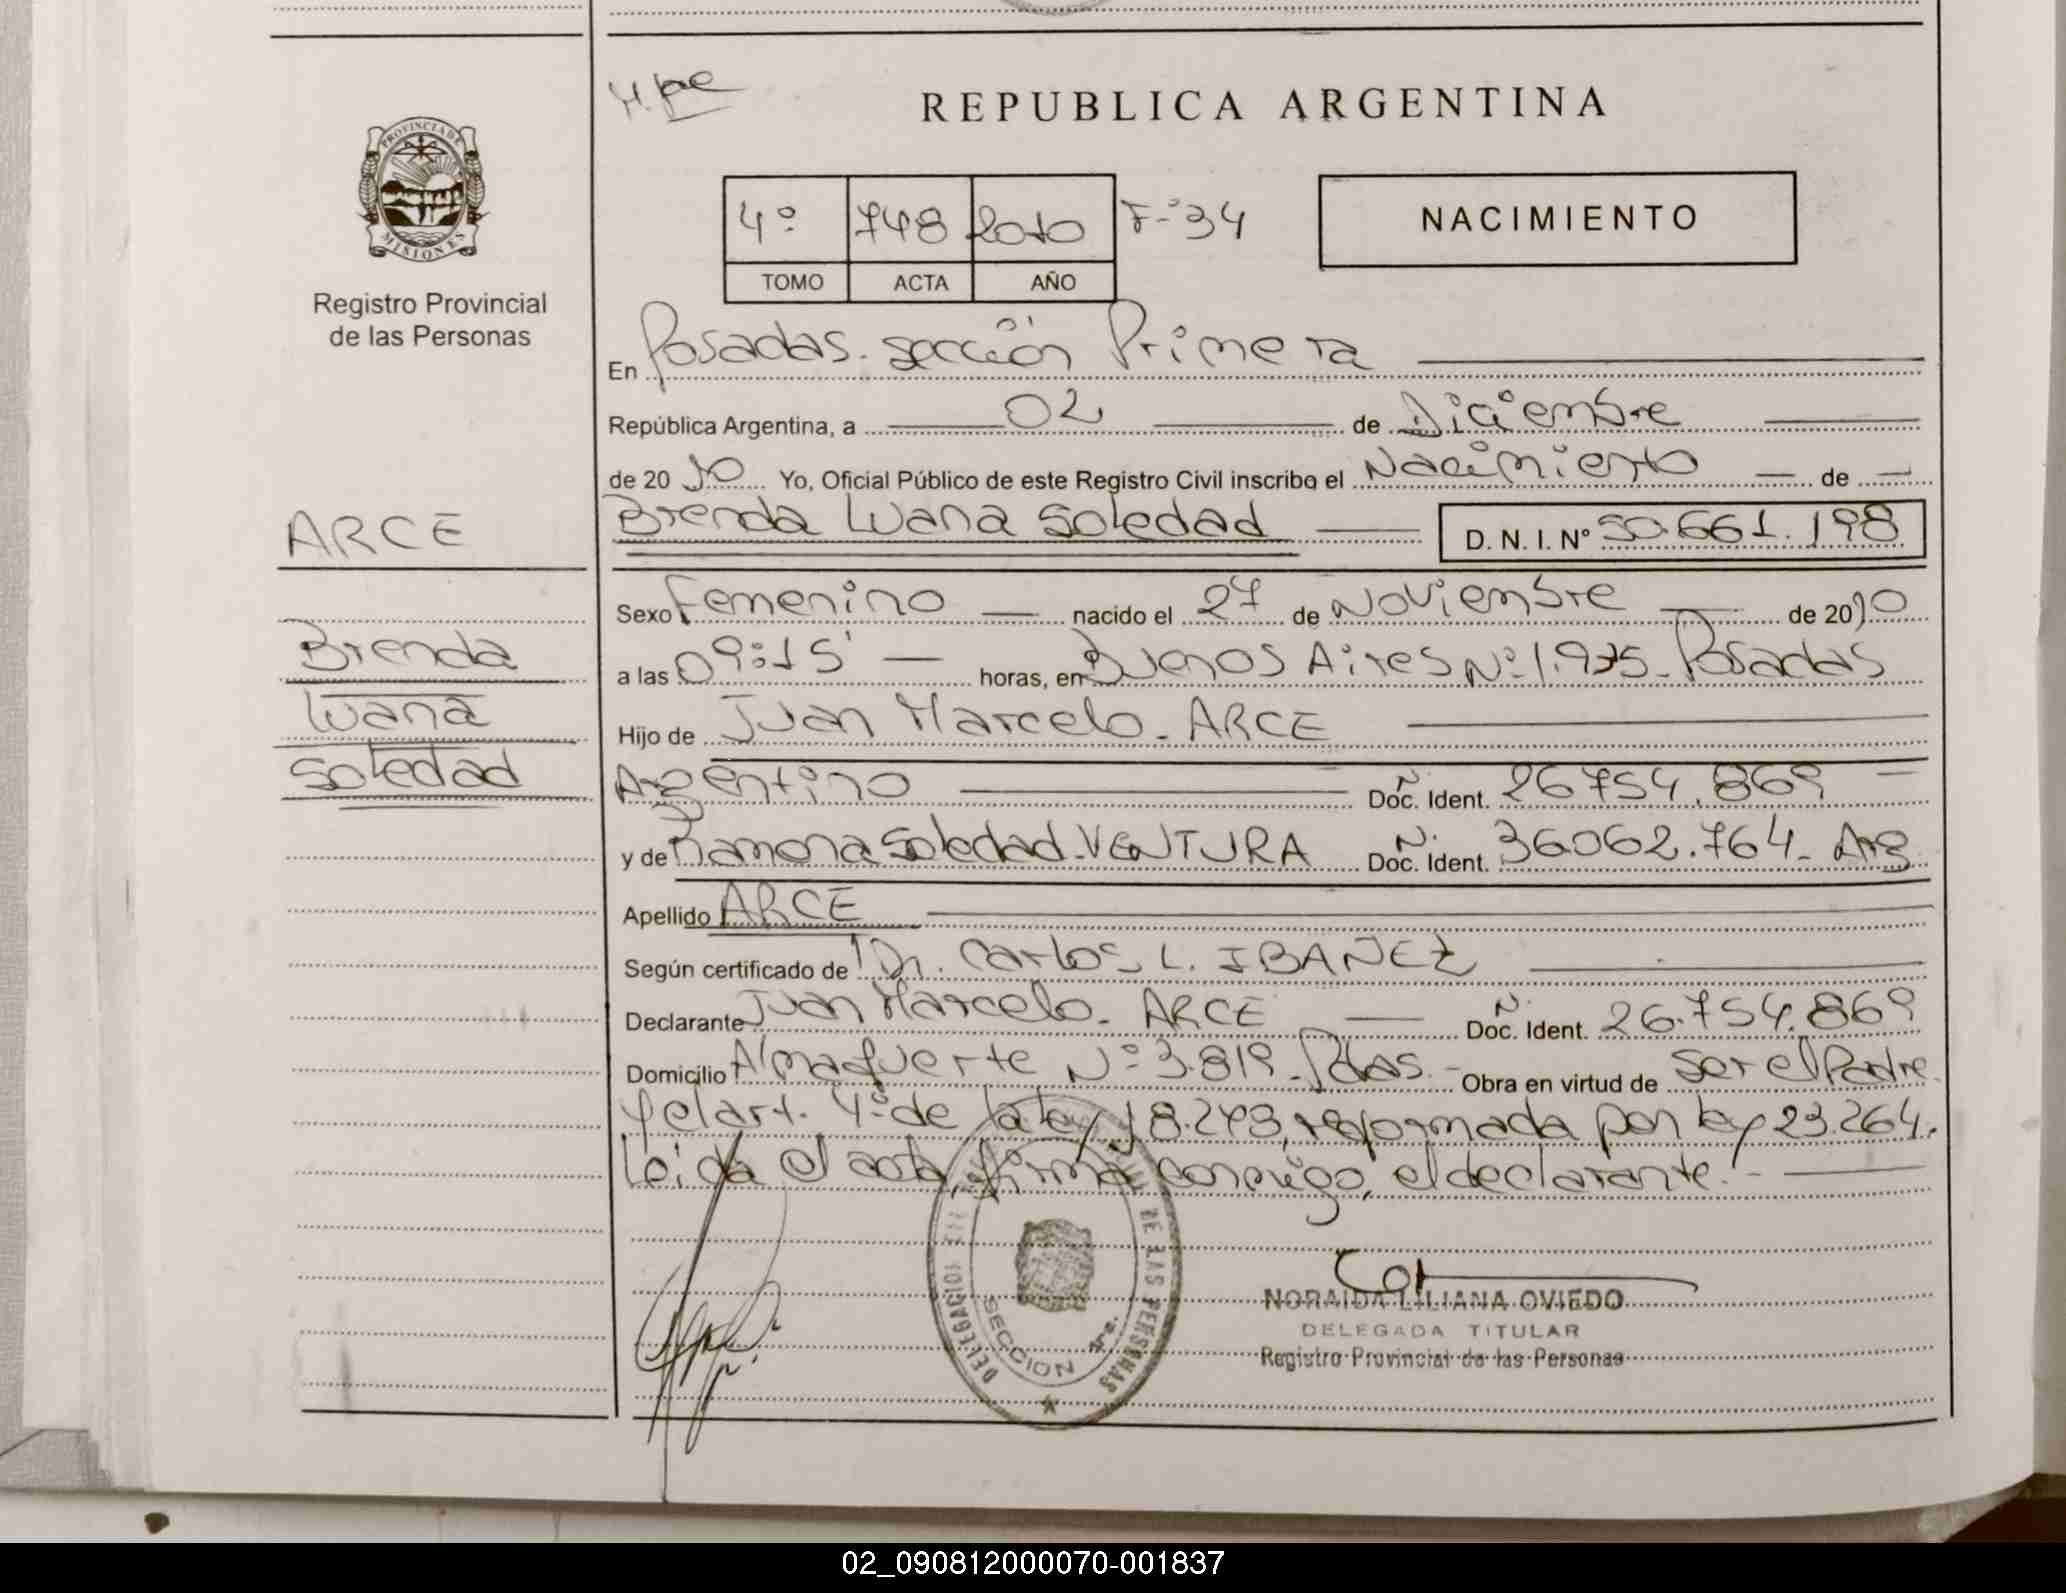 REPUBLICA ARGENTINA
PROVINCIA DE MISIONES
Registro Provincial
de las Personas
4º 748 2010 Fº 34
TOMO ACTA AÑO
NACIMIENTO
En Posadas. sección Primera
República Argentina, a 02 de Diciembre
de 2010 Yo, Oficial Público de este Registro Civil inscribo el Nacimiento de
ARCE
Brenda Luana Soledad D. N. I. Nº 50.661.198
Sexo Femenino nacido el 27 de Noviembre de 2010
Brenda
Luana
Soledad
a las 09:15' horas, en Buenos Aires Nº 1.975- Posadas
Hijo de Juan Marcelo- ARCE
Argentino Doc. Ident. Nº 26754.869
y de Ramona Soledad-VENTURA Doc. Ident. Nº 36062.764- Arg
Apellido ARCE
Según certificado de Dr. Carlos L. IBAÑEZ
Declarante Juan Marcelo- ARCE Doc. Ident. Nº 26.754.869
Domicilio Almafuerte Nº 3.819-Pdas.- Obra en virtud de ser el Padre
y el art. 4º de la ley 18.248, reformada por ley 23.264.
Leida el acta, firma conmigo, el declarante.-
DELEGACION DE LAS PERSONAS
SECCION 1ra.
NORAIDA LILIANA OVIEDO
DELEGADA TITULAR
Registro Provincial de las Personas
02_090812000070-001837